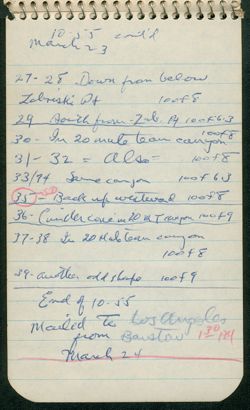 10-55 cont'd
March 23
27-28 Down from below
Zabriski Pt 100 f 8
29 South from Zab. Pt 100 f 6.3
30- In 20 mule team canyon 100 f 8
31-32 = Also = 100 f 8
33/34 Same canyon 100 f 6.3
35 - Back up westward 100 f 8
36- Cinder cone in 20 M T canyon 100 f 9
37-38 In 20 Mule team canyon
100 f 8
39- another odd shape 100 f 9
End of 10-55
Mailed to Los Angeles
from Barstow
March 24